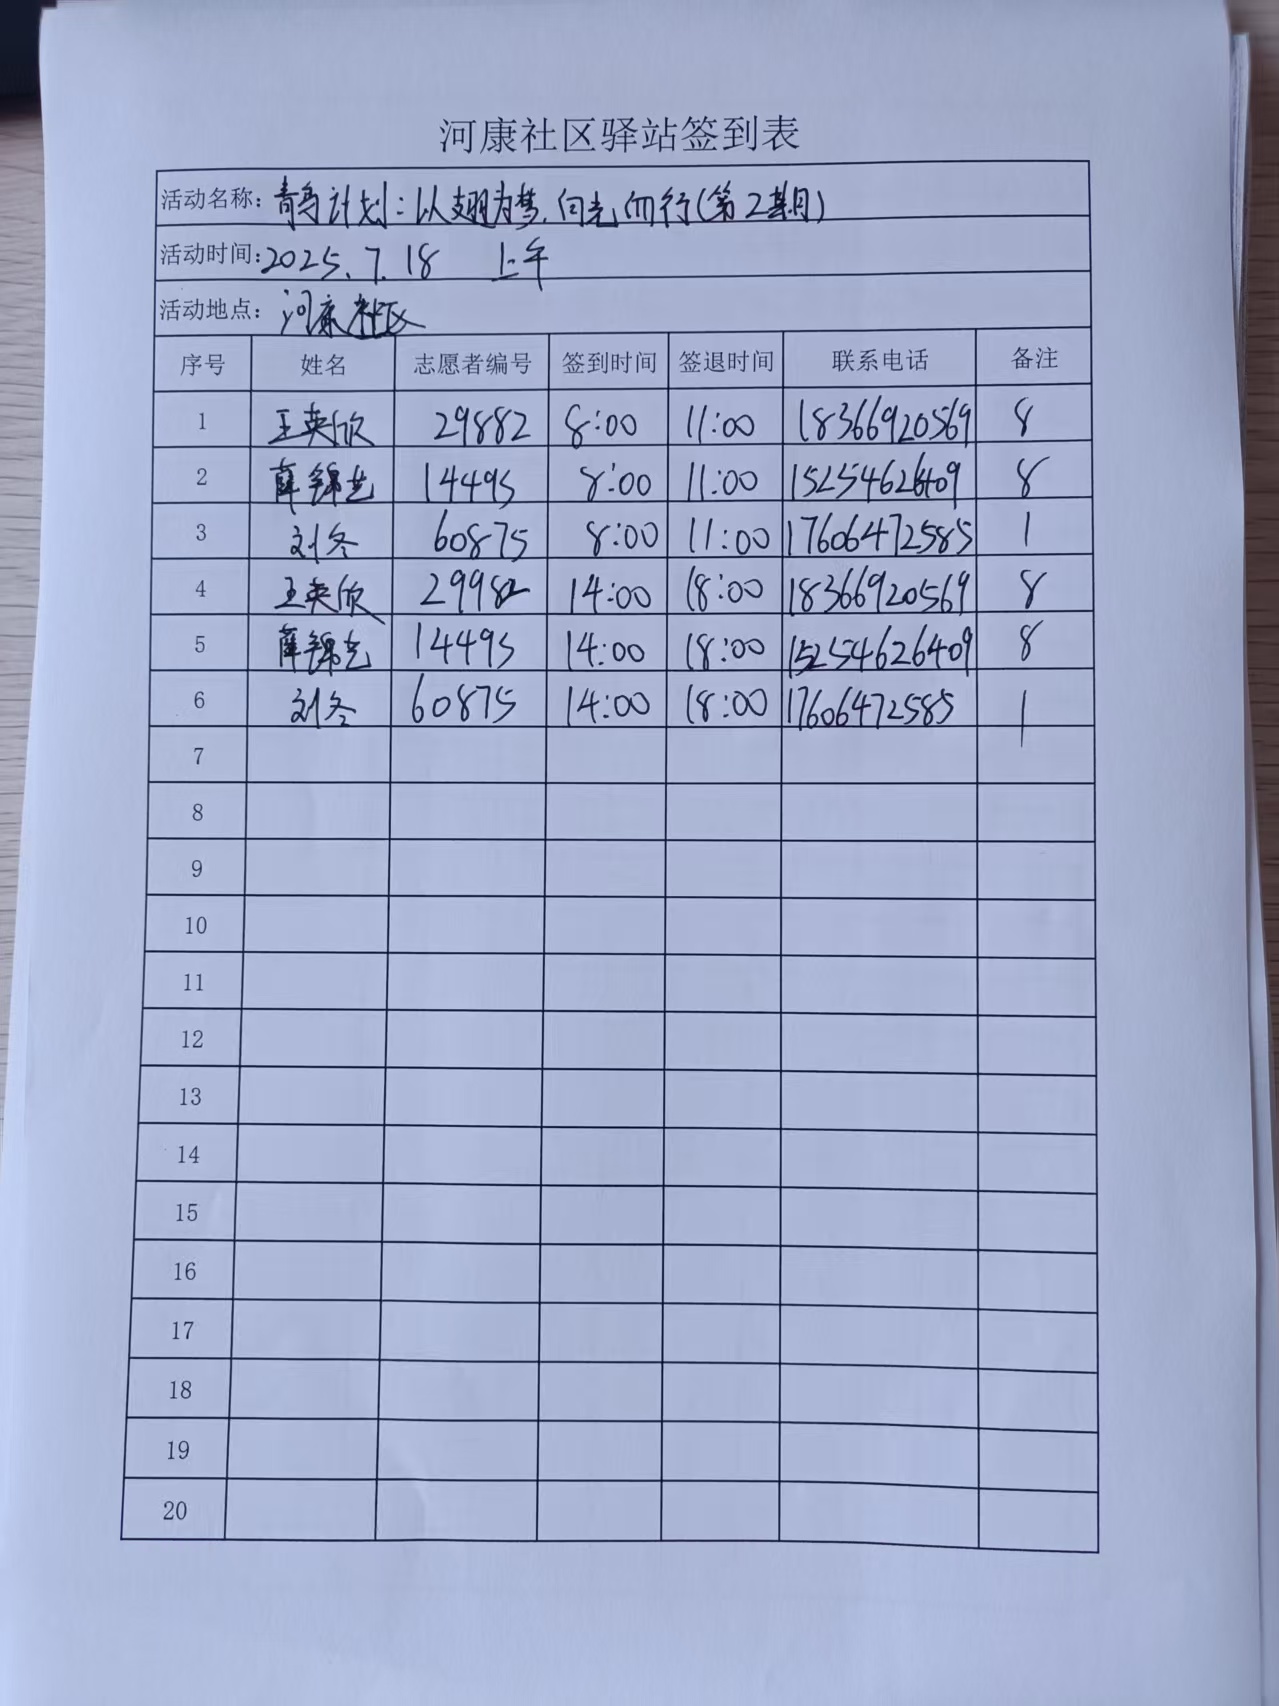 河康社区驿站签到表
活动名称：青鸟计划：以翅为梦,向光而行(第2期)
活动时间：2025.7.18 上午
活动地点：河康社区
序号 姓名 志愿者编号 签到时间 签退时间 联系电话 备注
1 王英欣 29882 8:00 11:00 18366920569 8
2 薛锦艺 14495 8:00 11:00 15254626409 8
3 刘冬 60875 8:00 11:00 17606472585 1
4 王英欣 29982 14:00 18:00 18366920569 8
5 薛锦艺 14495 14:00 18:00 15254626409 8
6 刘冬 60875 14:00 18:00 17606472585 1
7
8
9
10
11
12
13
14
15
16
17
18
19
20